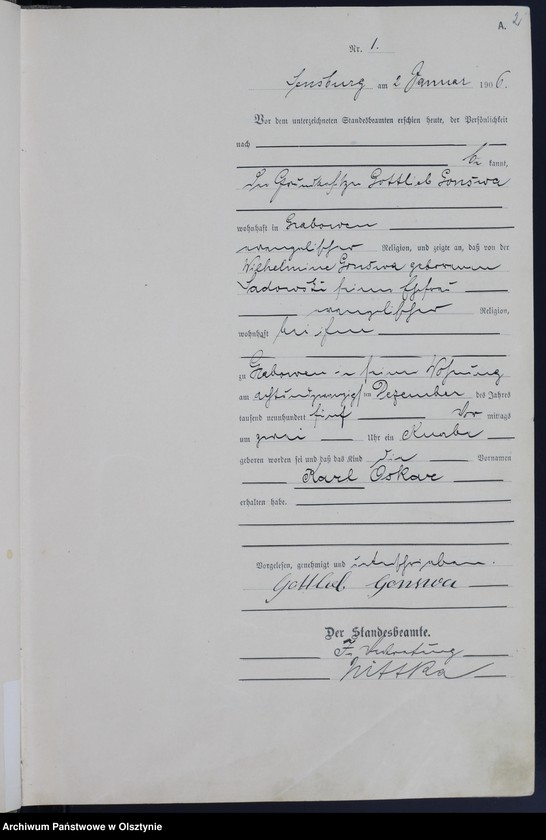 A. 2
Nr. 1.
Sensburg am 2 Januar 1906.
Vor dem unterzeichneten Standesbeamten erschien heute, der Persönlichkeit
nach
be kannt,
der Grundbesitzer Gottlieb Gonswa
wohnhaft in Grabowen
evangelischer Religion, und zeigte an, daß von der
Wilhelmine Gonswa geborenen
Sadowski seiner Ehefrau
evangelischer Religion,
wohnhaft bei ihm
zu Grabowen in seiner Wohnung
am achtundzwanzigsten im Dezember des Jahres
tausend neunhundert fünf Vor mittags
um zwei Uhr ein Knabe
geboren worden sei und daß das Kind die Vornamen
Karl Oskar
erhalten habe.
Vorgelesen, genehmigt und unterschrieben.
Gottlieb Gonswa
Der Standesbeamte.
In Vertretung
Nittka
Archiwum Państwowe w Olsztynie